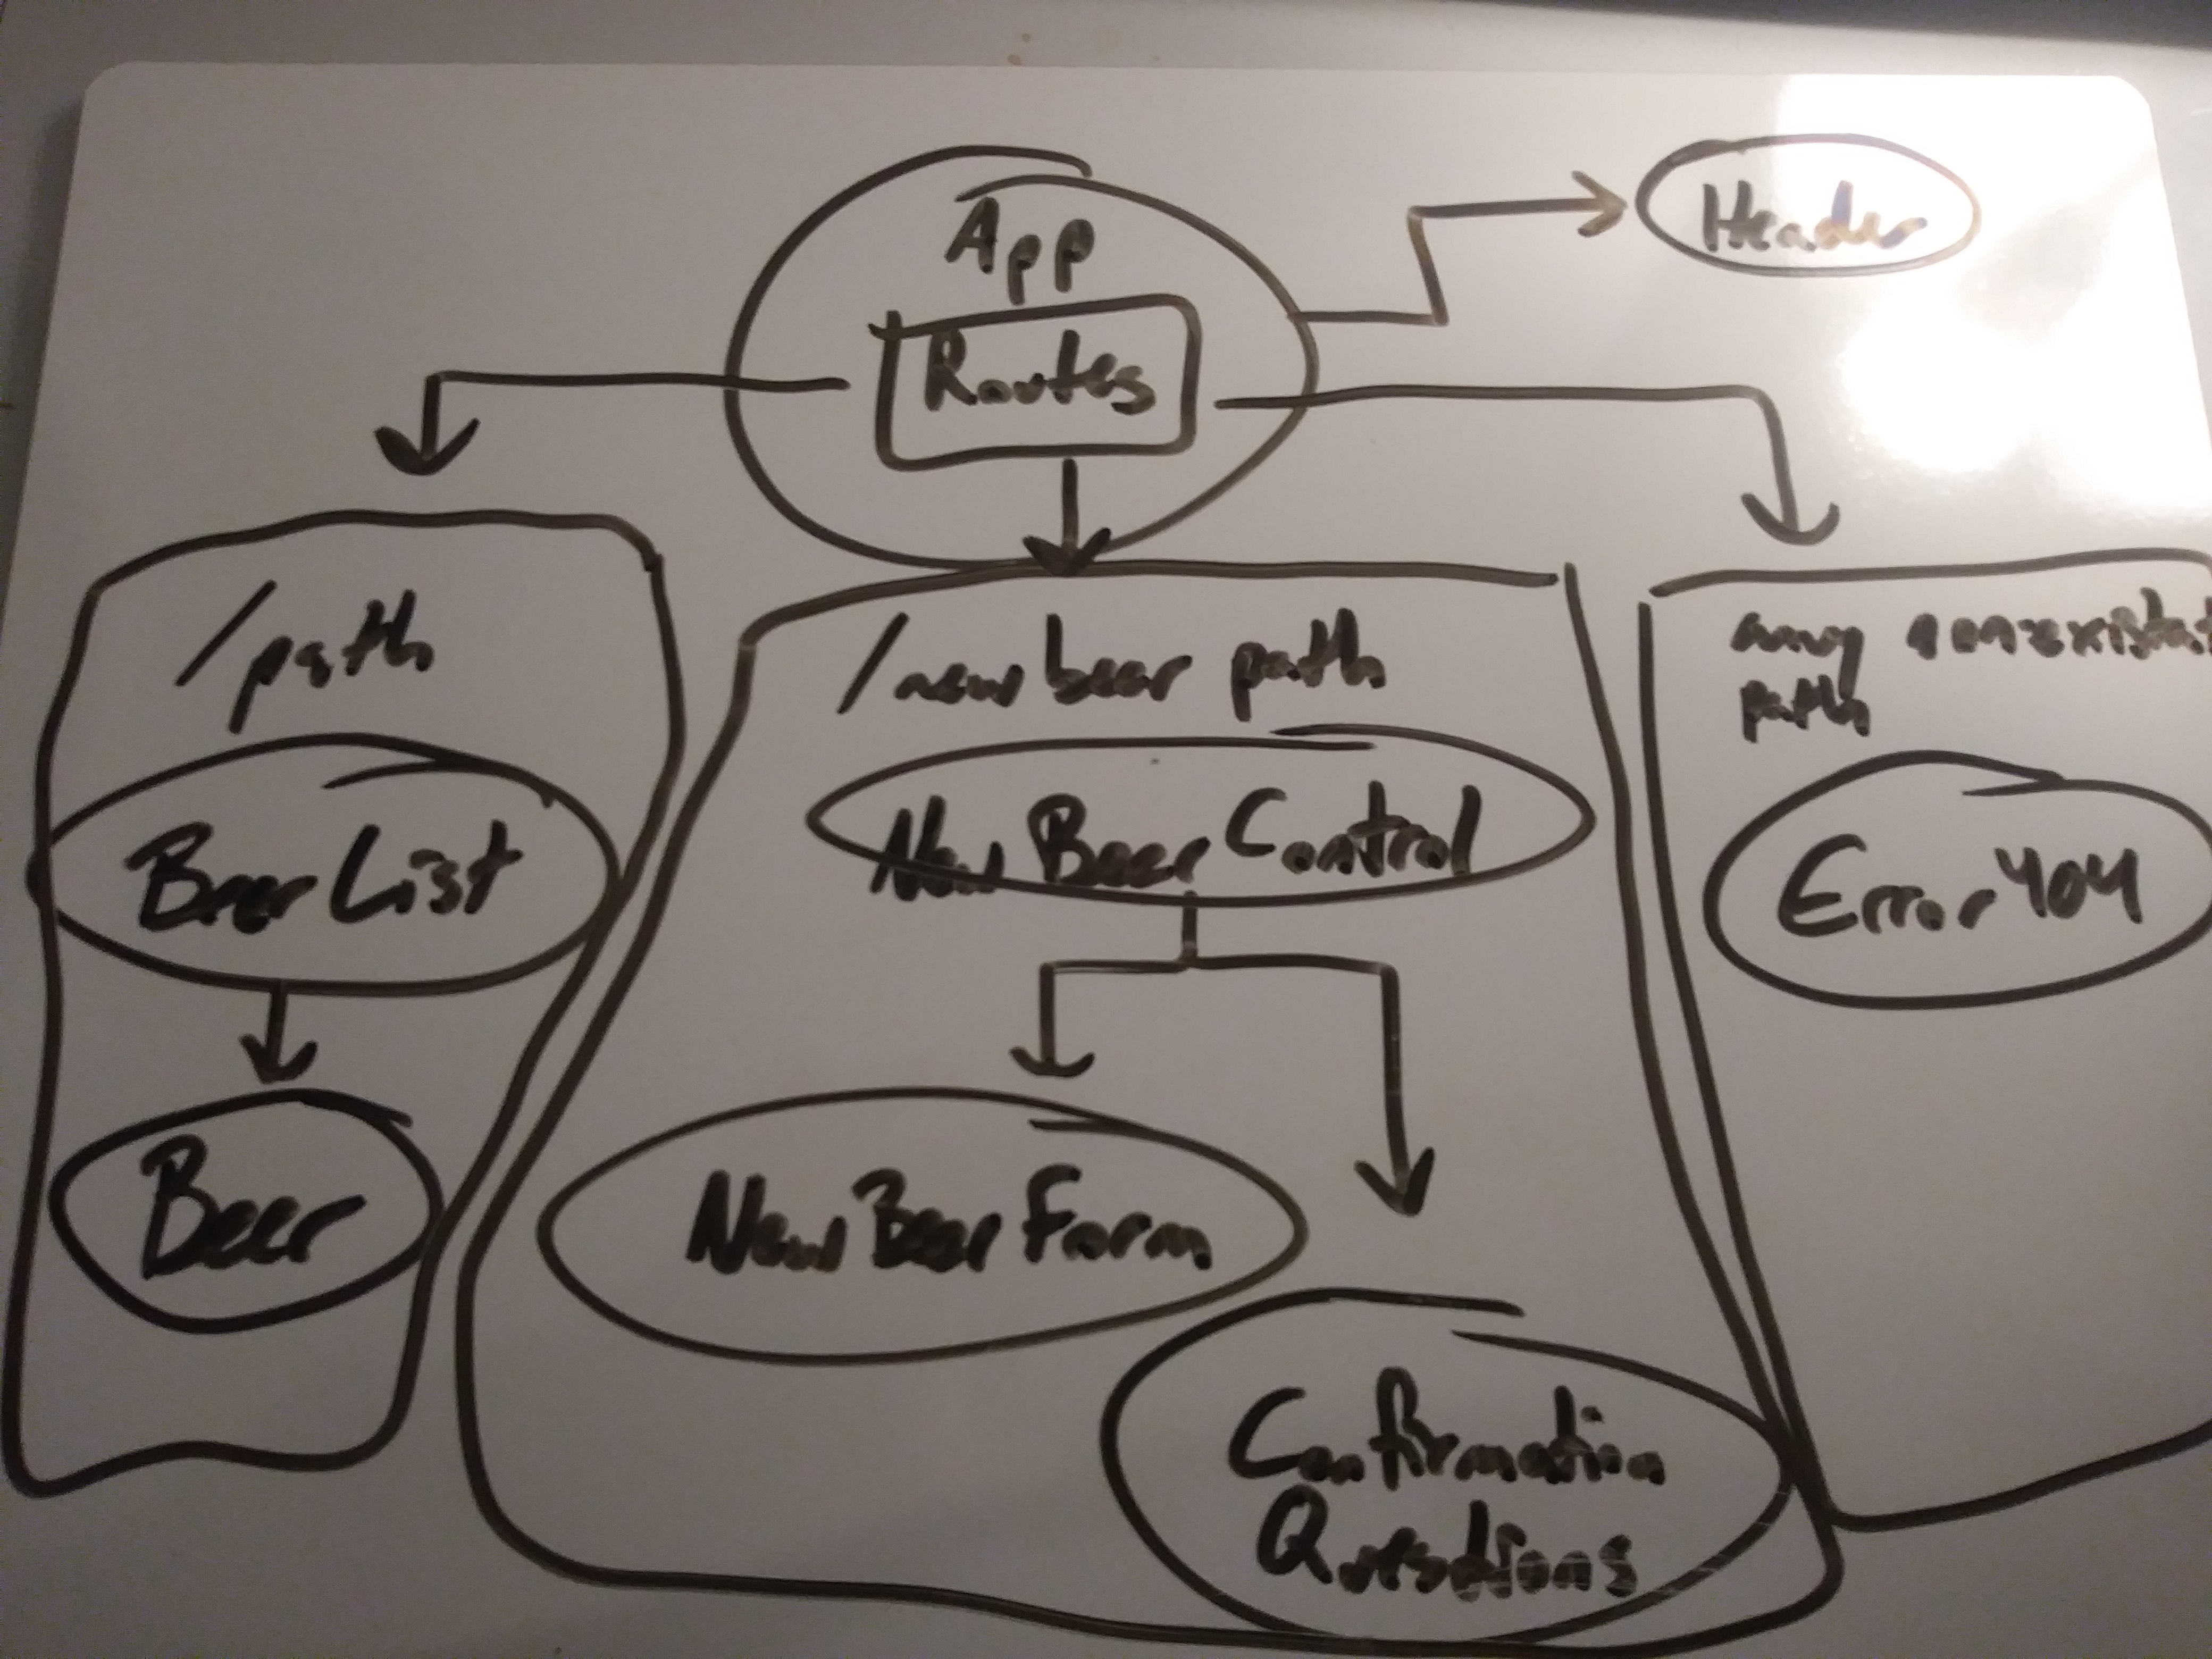 App
Routes
Header
/path
Beer List
Beer
/newbeer path
New Beer Control
New Beer Form
Confirmation
Questions
any
path
Error 404